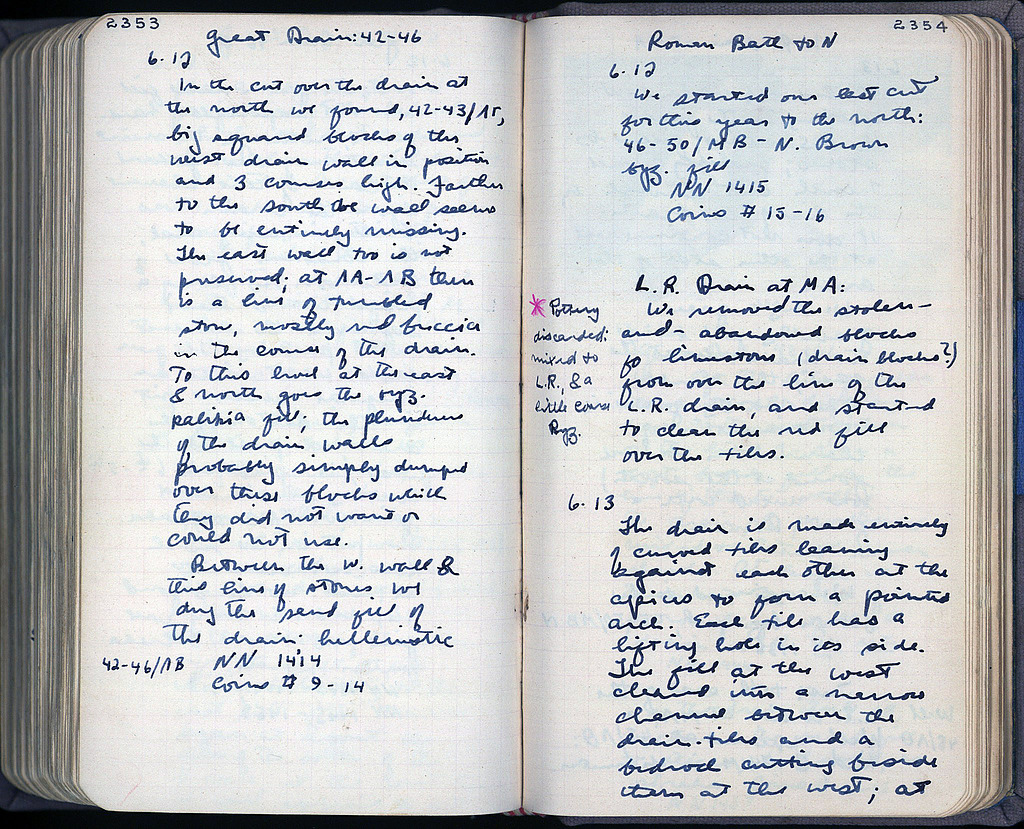 2353
Great Drain: 42-46
6.12
In the cut over the drain at
the north we found, 42-43/ΛΓ,
big squared blocks of the
west drain wall in position
and 3 courses high. Farther
to the south the wall seems
to be entirely missing.
The east wall too is not
preserved; at ΛA-ΛB there
is a line of tumbled
stone, mostly red breccia
in the course of the drain.
To this level at the east
& north goes the byz.
fill; the plunderers
of the drain walls
probably simply dumped
over these blocks which
they did not want or
could not use.
Between the w. wall &
this line of stones we
dug the sand fill of
the drain: hellenistic
42-46/ΛB NN 1414
Coins # 9-14
2354
Roman Bath to N
6.12
We started our last cut
for this year to the north:
46-50/MB-N. Brown
byz. fill
NN 1415
Coins # 15-16
L.R. Drain at MA:
We removed the stolen-
and-abandoned blocks
of limestone (drain blocks?)
from over the line of the
L.R. drain, and started
to clean the red fill
over the tiles.
* Pottery
discarded:
mixed to
L.R., & a
little coarse
Byz.
6.13
The drain is made entirely
of curved tiles leaning
against each other at the
apices to form a pointed
arch. Each tile has a
lifting hole in its side.
The fill at the west
cleaned into a narrow
channel between the
drain tiles and a
bedrock cutting beside
them at the west; at